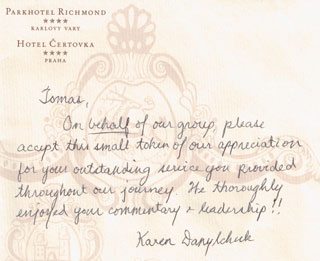 PARKHOTEL RICHMOND
★★★★
KARLOVY VARY
HOTEL ČERTOVKA
★★★★
PRAHA
Tomas,
On behalf of our group, please
accept this small token of our appreciation
for your outstanding service you provided
throughout our journey. We thoroughly
enjoyed your commentary & leadership!!
Karen Danylchuk